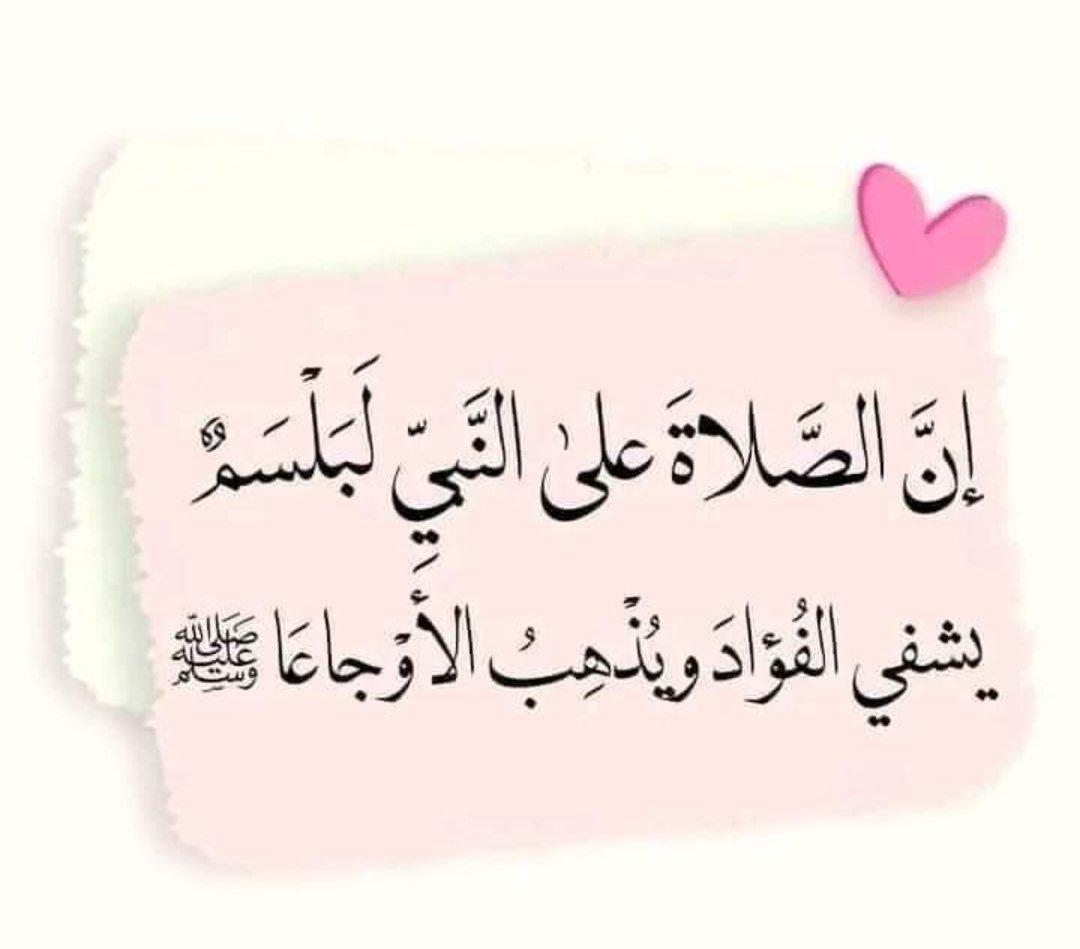 إنَّ الصَّلاةَ علىٰ النَّبيِّ لَبَلْسَمٌ
يشفي الفُؤادَ ويُذْهِبُ الأَوْجاعَا ﷺ